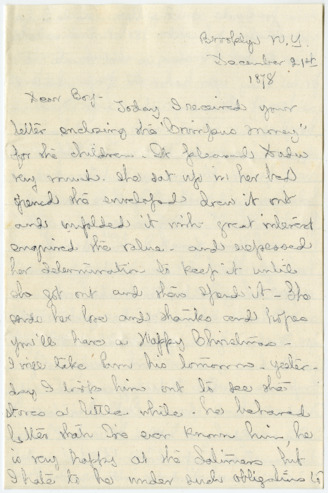 Brooklyn N.Y.
December 21st
1878
Dear Boy-
Today I received your
letter enclosing the
for the children. It pleased
very much. She sat up in her bed
opened the envelope & drew it out
and unfolded it with great interest
enquired the value - and expressed
her determination to keep it until
she got out and then spend it - She
sends her love and thanks and hopes
you'll have a Happy Christmas -
I will take his tomorrow. yester-
day I took him out to see the
stores a little while. he behaved
better than I've ever known him, he
is very happy at the but
I hate to be under such obligations to